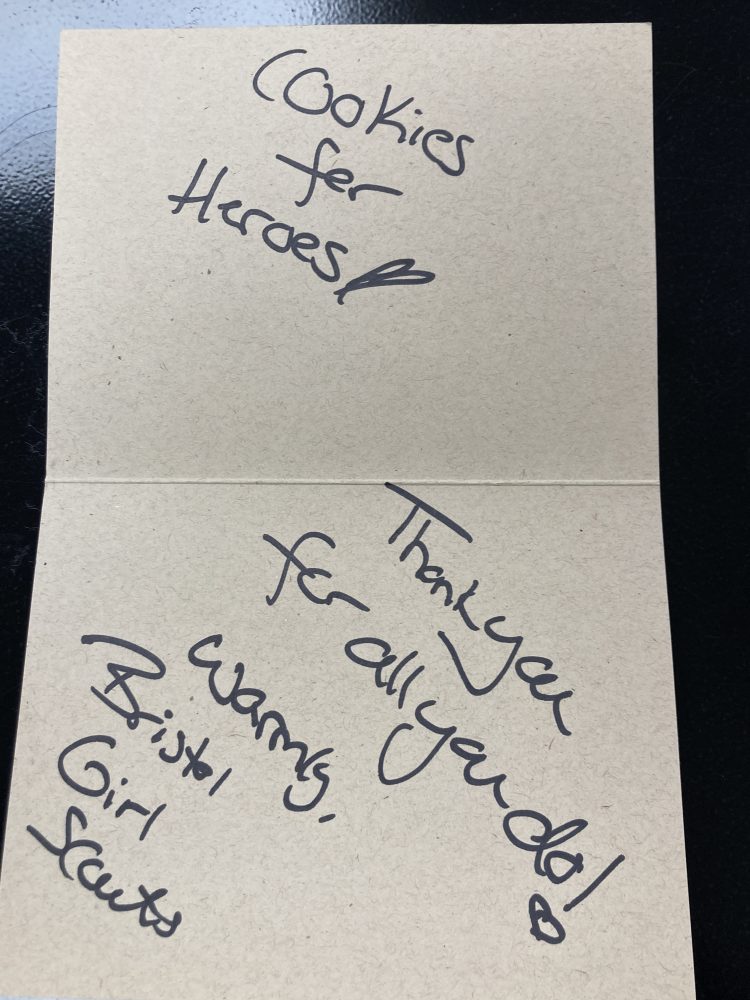 Cookies
for
Heroes
Thank you
for all you do!
Warmly,
Bristol
Girl
Scouts